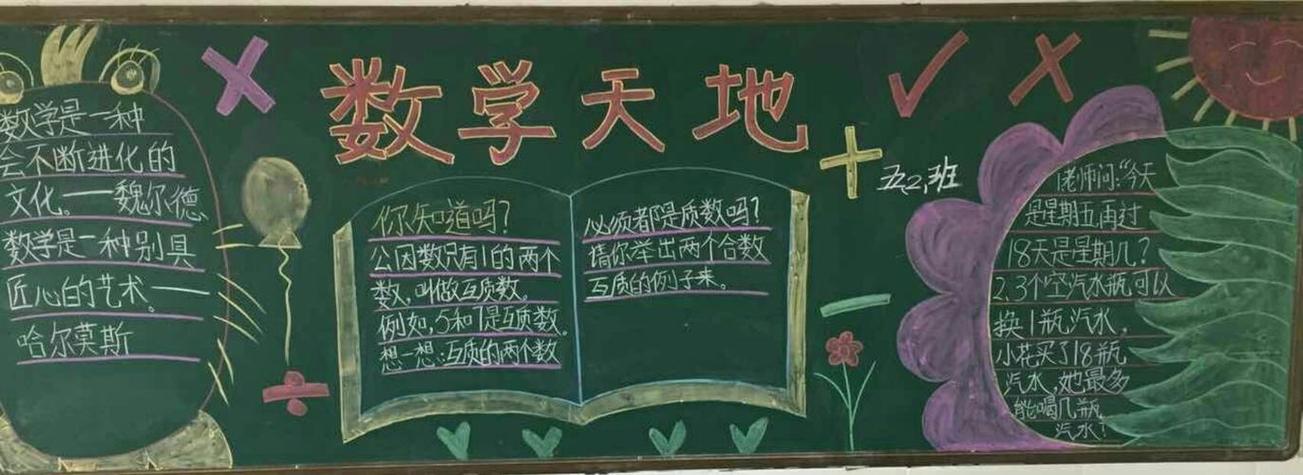 数学天地
五.2.班
数学是一种
会不断进化的
文化。——魏尔德
数学是一种别具
匠心的艺术。——
哈尔莫斯
你知道吗？
公因数只有1的两个
数，叫做互质数。
例如，5和7是互质数。
想一想：互质的两个数
必须都是质数吗？
请你举出两个合数
互质的例子来。
1老师问：“今天
是星期五，再过
18天是星期几？
2.3个空汽水瓶可以
换1瓶汽水，
小花买了18瓶
汽水，她最多
能喝几瓶
汽水？